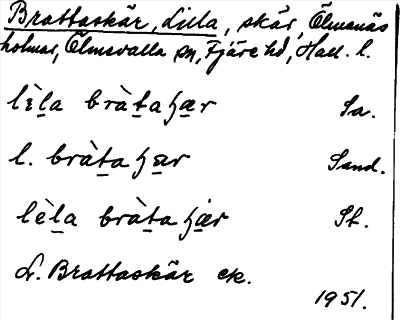 Brattaskär, Lilla, skär, Ölmanäs
holmar, Ölmevalla sn, Fjäre hd, Hall. l.
lèl̠a bràt̠a ꜧær Sa.
l. bràt̠a ꜧær Sand.
lèl̠a bràt̠a ꜧær St.
L. Brattaskär ek.
1951.